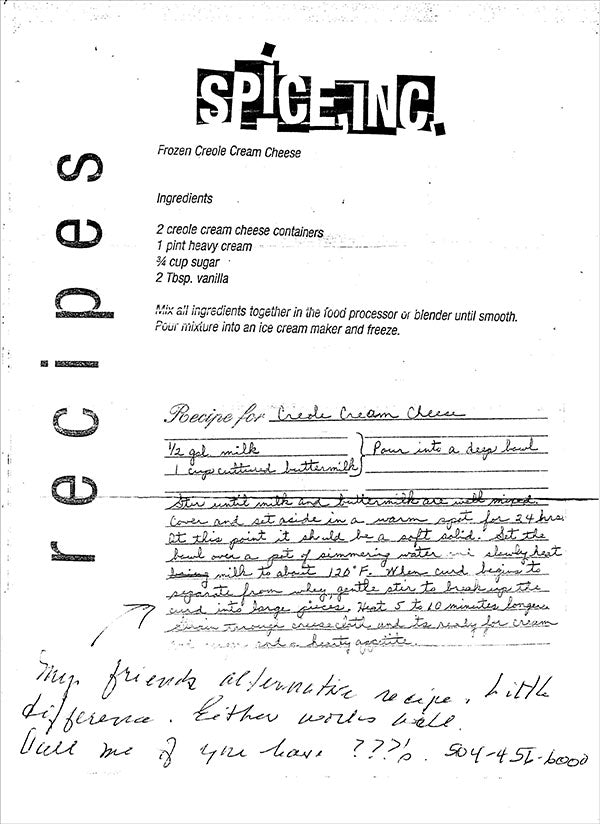 SPICE, INC.
recipes
Frozen Creole Cream Cheese
Ingredients
2 creole cream cheese containers
1 pint heavy cream
¾ cup sugar
2 Tbsp. vanilla
Mix all ingredients together in the food processor or blender until smooth.
Pour mixture into an ice cream maker and freeze.
Recipe for Creole Cream Cheese
½ gal. milk
1 cup cultured buttermilk } Pour into a deep bowl
Stir until milk and buttermilk are well mixed.
Cover and set aside in a warm spot for 24 hrs.
At this point it should be a soft solid. Set the
bowl over a pot of simmering water and slowly heat
milk to about 120°F. When curd begins to
separate from whey, gentle stir to break up the
curd into large pieces. Heat 5 to 10 minutes longer.
Strain through cheesecloth and its ready for cream
and and a hearty appetite.
My friends alternative recipe. Little
difference. Either works well.
Call me if you have ???'s. 504-45 -6000